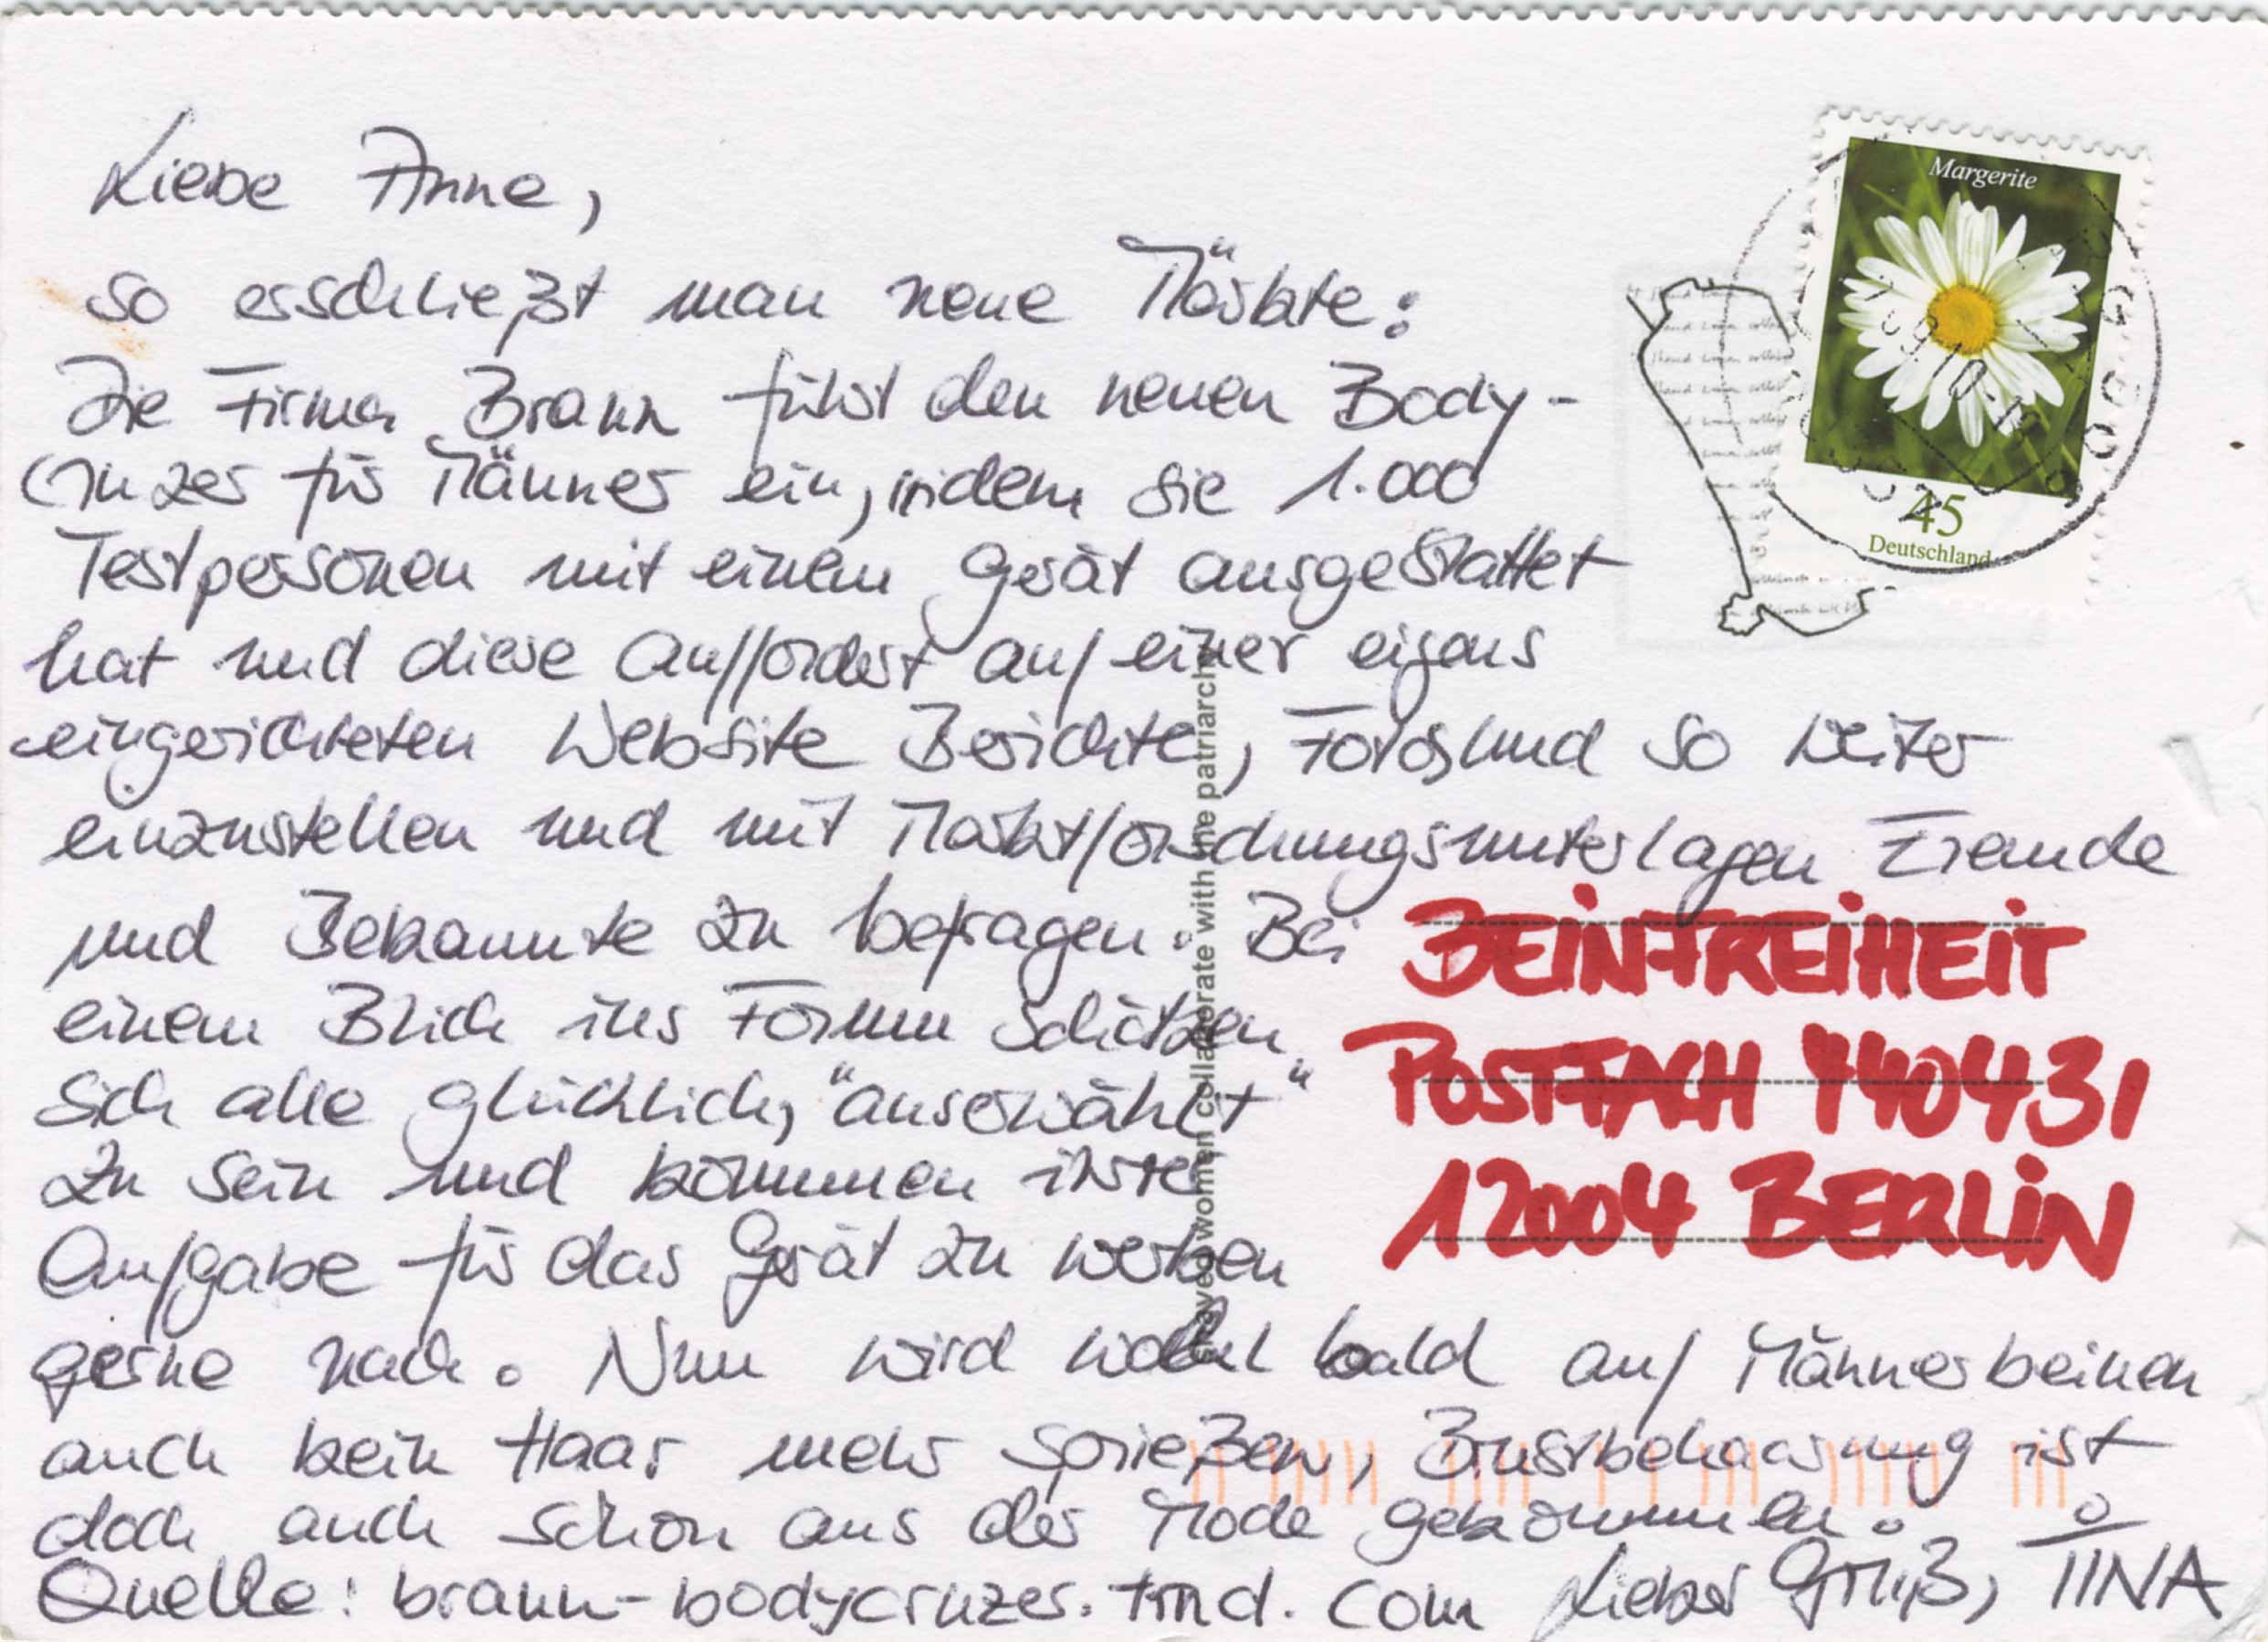 Liebe Anne,
so erschließt man neue Märkte:
Die Firma Braun führt den neuen Body-
Cruzer für Männer ein, indem sie 1.000
Testpersonen mit einem Gerät ausgestattet
hat und diese auffordert auf einer eigens
eingerichteten Website Berichte, Fotos und so weiter
einzustellen und mit Marktforschungsunterlagen Fremde
und Bekannte zu befragen. Bei
einem Blick ins Forum schätzen
sich alle glücklich, "auserwählt"
zu sein und kommen ihrer
Aufgabe für das Gerät zu werben
gerne nach. Nun wird wohl bald auf Männerbeinen
auch kein Haar mehr sprießen, Brustbehaarung ist
doch auch schon aus der Mode gekommen.
Quelle: braun-bodycruzer.trnd.com Lieber Gruß, TINA
BEINFREIHEIT
POSTFACH 440431
12004 BERLIN
women collaborate with the patriarchy
Margerite
45
Deutschland